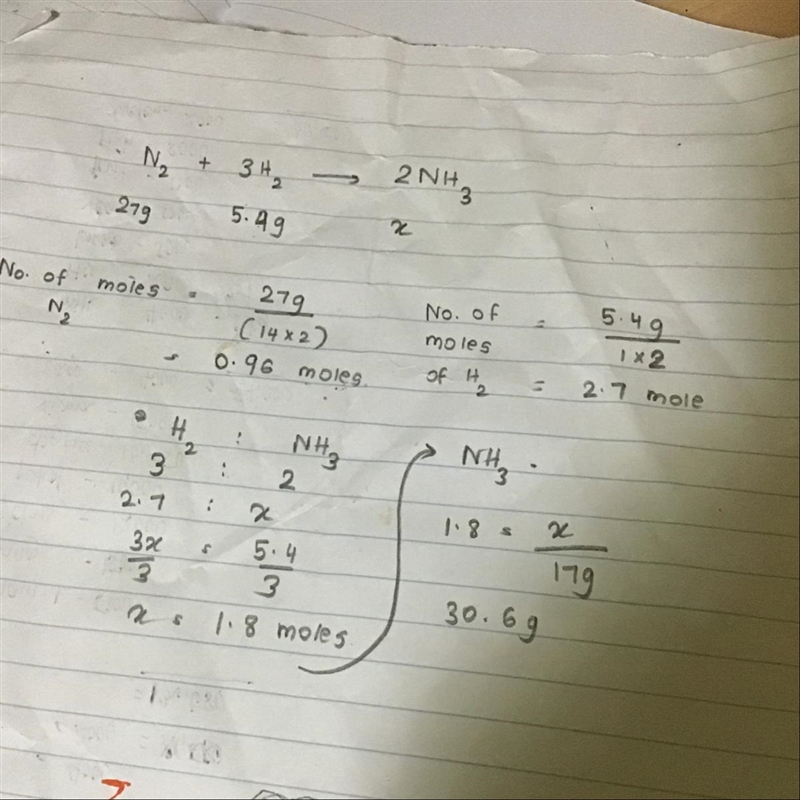 N₂ + 3H₂ → 2NH₃
27g 5.4g x
No. of moles = 27g / (14×2)
N₂
= 0.96 moles
No. of moles of H₂ = 5.4g / 1×2
= 2.7 mole
H₂ : NH₃
3 : 2
2.7 : x
3x/3 = 5.4/3
x = 1.8 moles
NH₃.
1.8 = x / 17g
30.6g